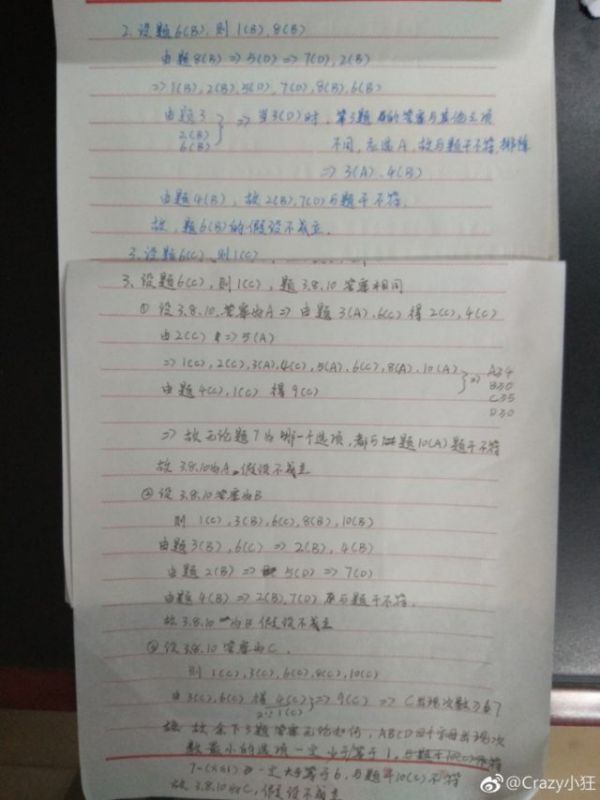 2. 设题6(B), 则1(B), 8(B)
由题8(B) => 5(D) => 7(D), 2(B)
=> 1(B), 2(B), 5(D), 7(D), 8(B), 6(B)
由题3
2(B)
6(B)
} => 当3(D)时, 第3题的答案与其他三项
不同, 应选A, 故与题干不符, 排除
=> 3(A), 4(B)
由题4(B), 故2(B), 7(D)与题干不符.
故, 题6(B)的假设不成立.
3. 设题6(C), 则1(C)
3. 设题6(C), 则1(C), 题3.8.10答案相同
① 设3.8.10.答案为A => 由题3(A), 6(C)得2(C), 4(C)
由2(C) => 5(A)
=> 1(C), 2(C), 3(A), 4(C), 5(A), 6(C), 8(A), 10(A)
由题4(C), 1(C) 得9(C)
} =>
A34
B30
C35
D30
=> 故无论题7为哪一个选项, 都与题10(A)题干不符
故3.8.10为A, 假设不成立
② 设3.8.10答案为B
则1(C), 3(B), 6(C), 8(B), 10(B)
由题3(B), 6(C) => 2(B), 4(B)
由题2(B) => 5(D) => 7(D)
由题4(B) => 2(B), 7(D)与题干不符.
故3.8.10为B假设不成立
③ 设3.8.10答案为C.
则1(C), 3(C), 6(C), 8(C), 10(C)
由3(C), 6(C)得4(C) } => 9(C) => C出现次数≥7
1(C)
故余下3题答案无论如何, ABCD四个字母出现次
数最小的选项一定少于等于1, 与题干10(C)不符
7-(≤1) 一定大于等于6, 与题干10(C)不符
故3.8.10为C, 假设不成立
@Crazy小狂